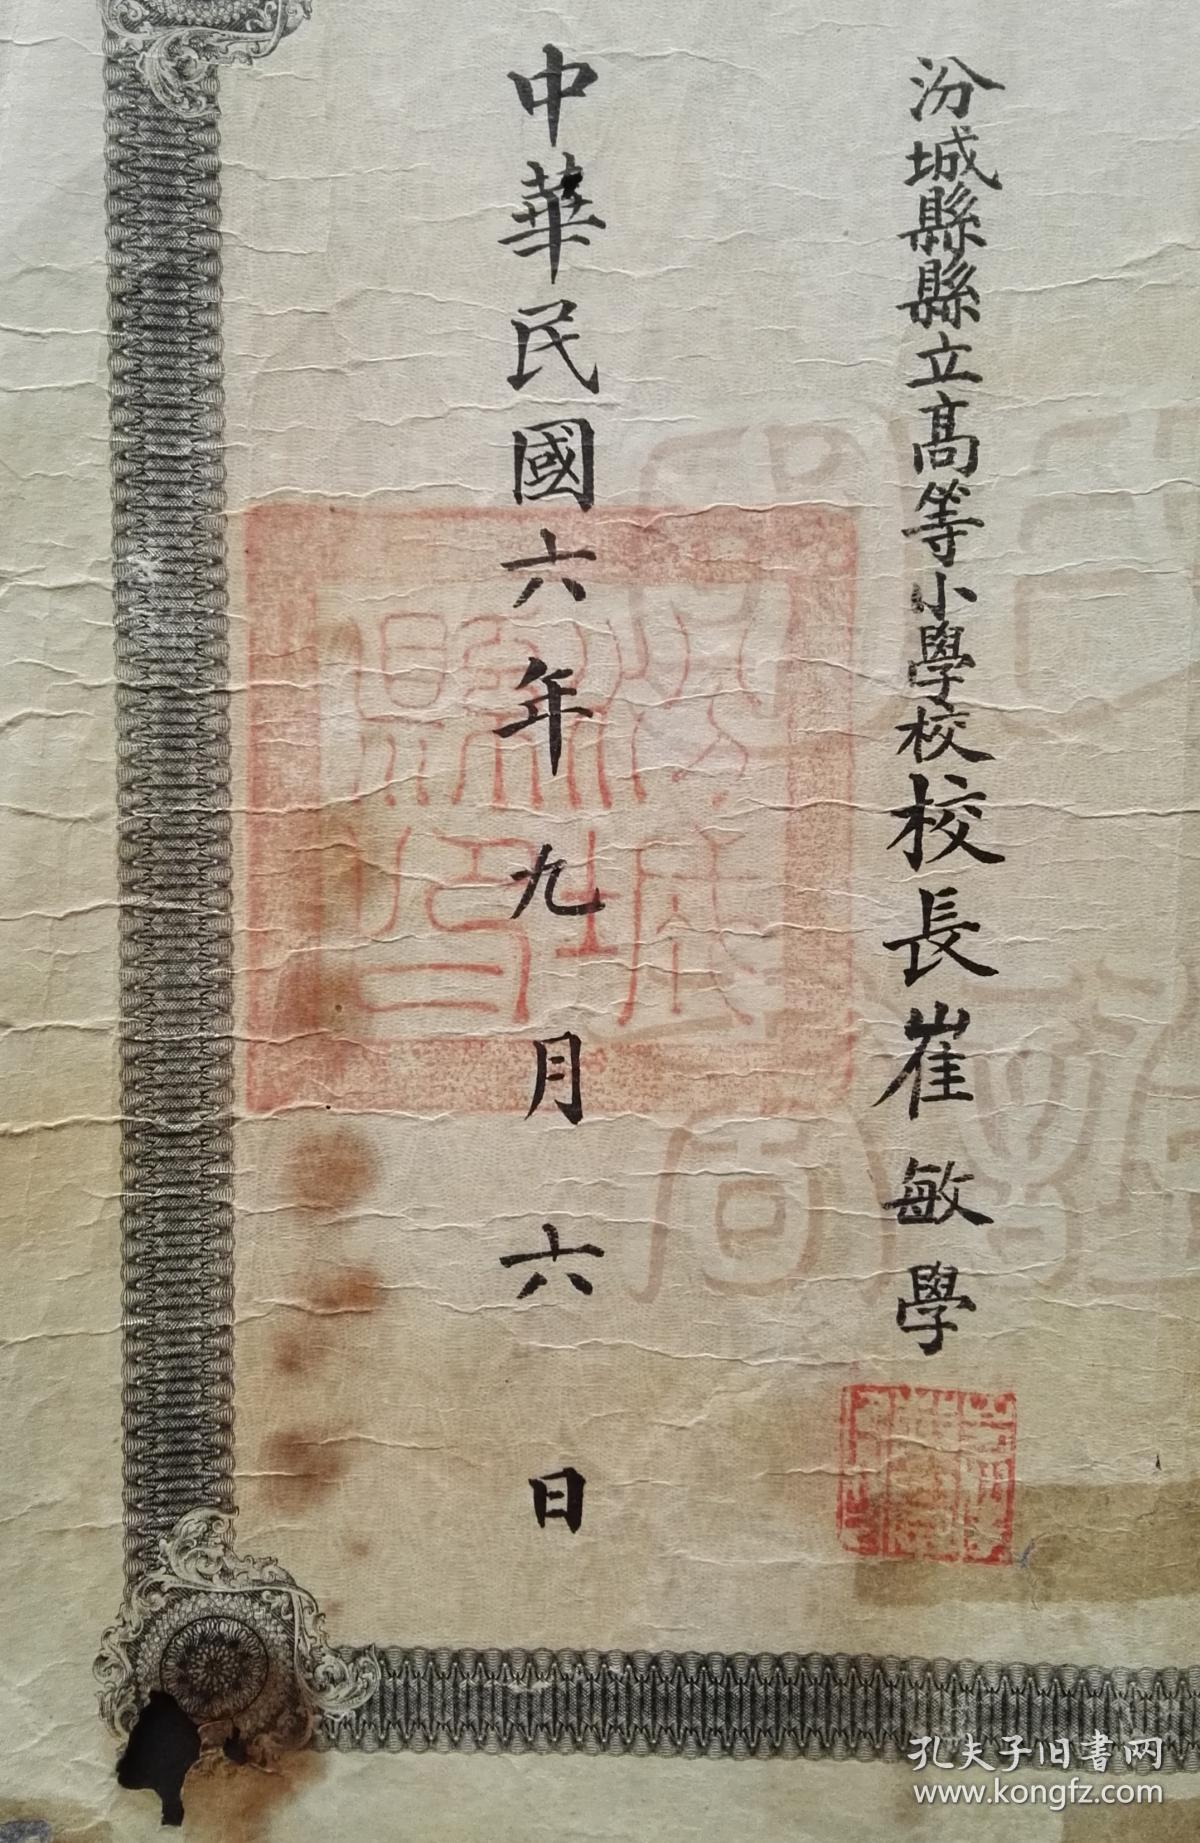 汾城縣縣立高等小學校校長崔敏學
中華民國六年九月六日
汾城縣印
孔夫子旧书网
www.kongfz.com